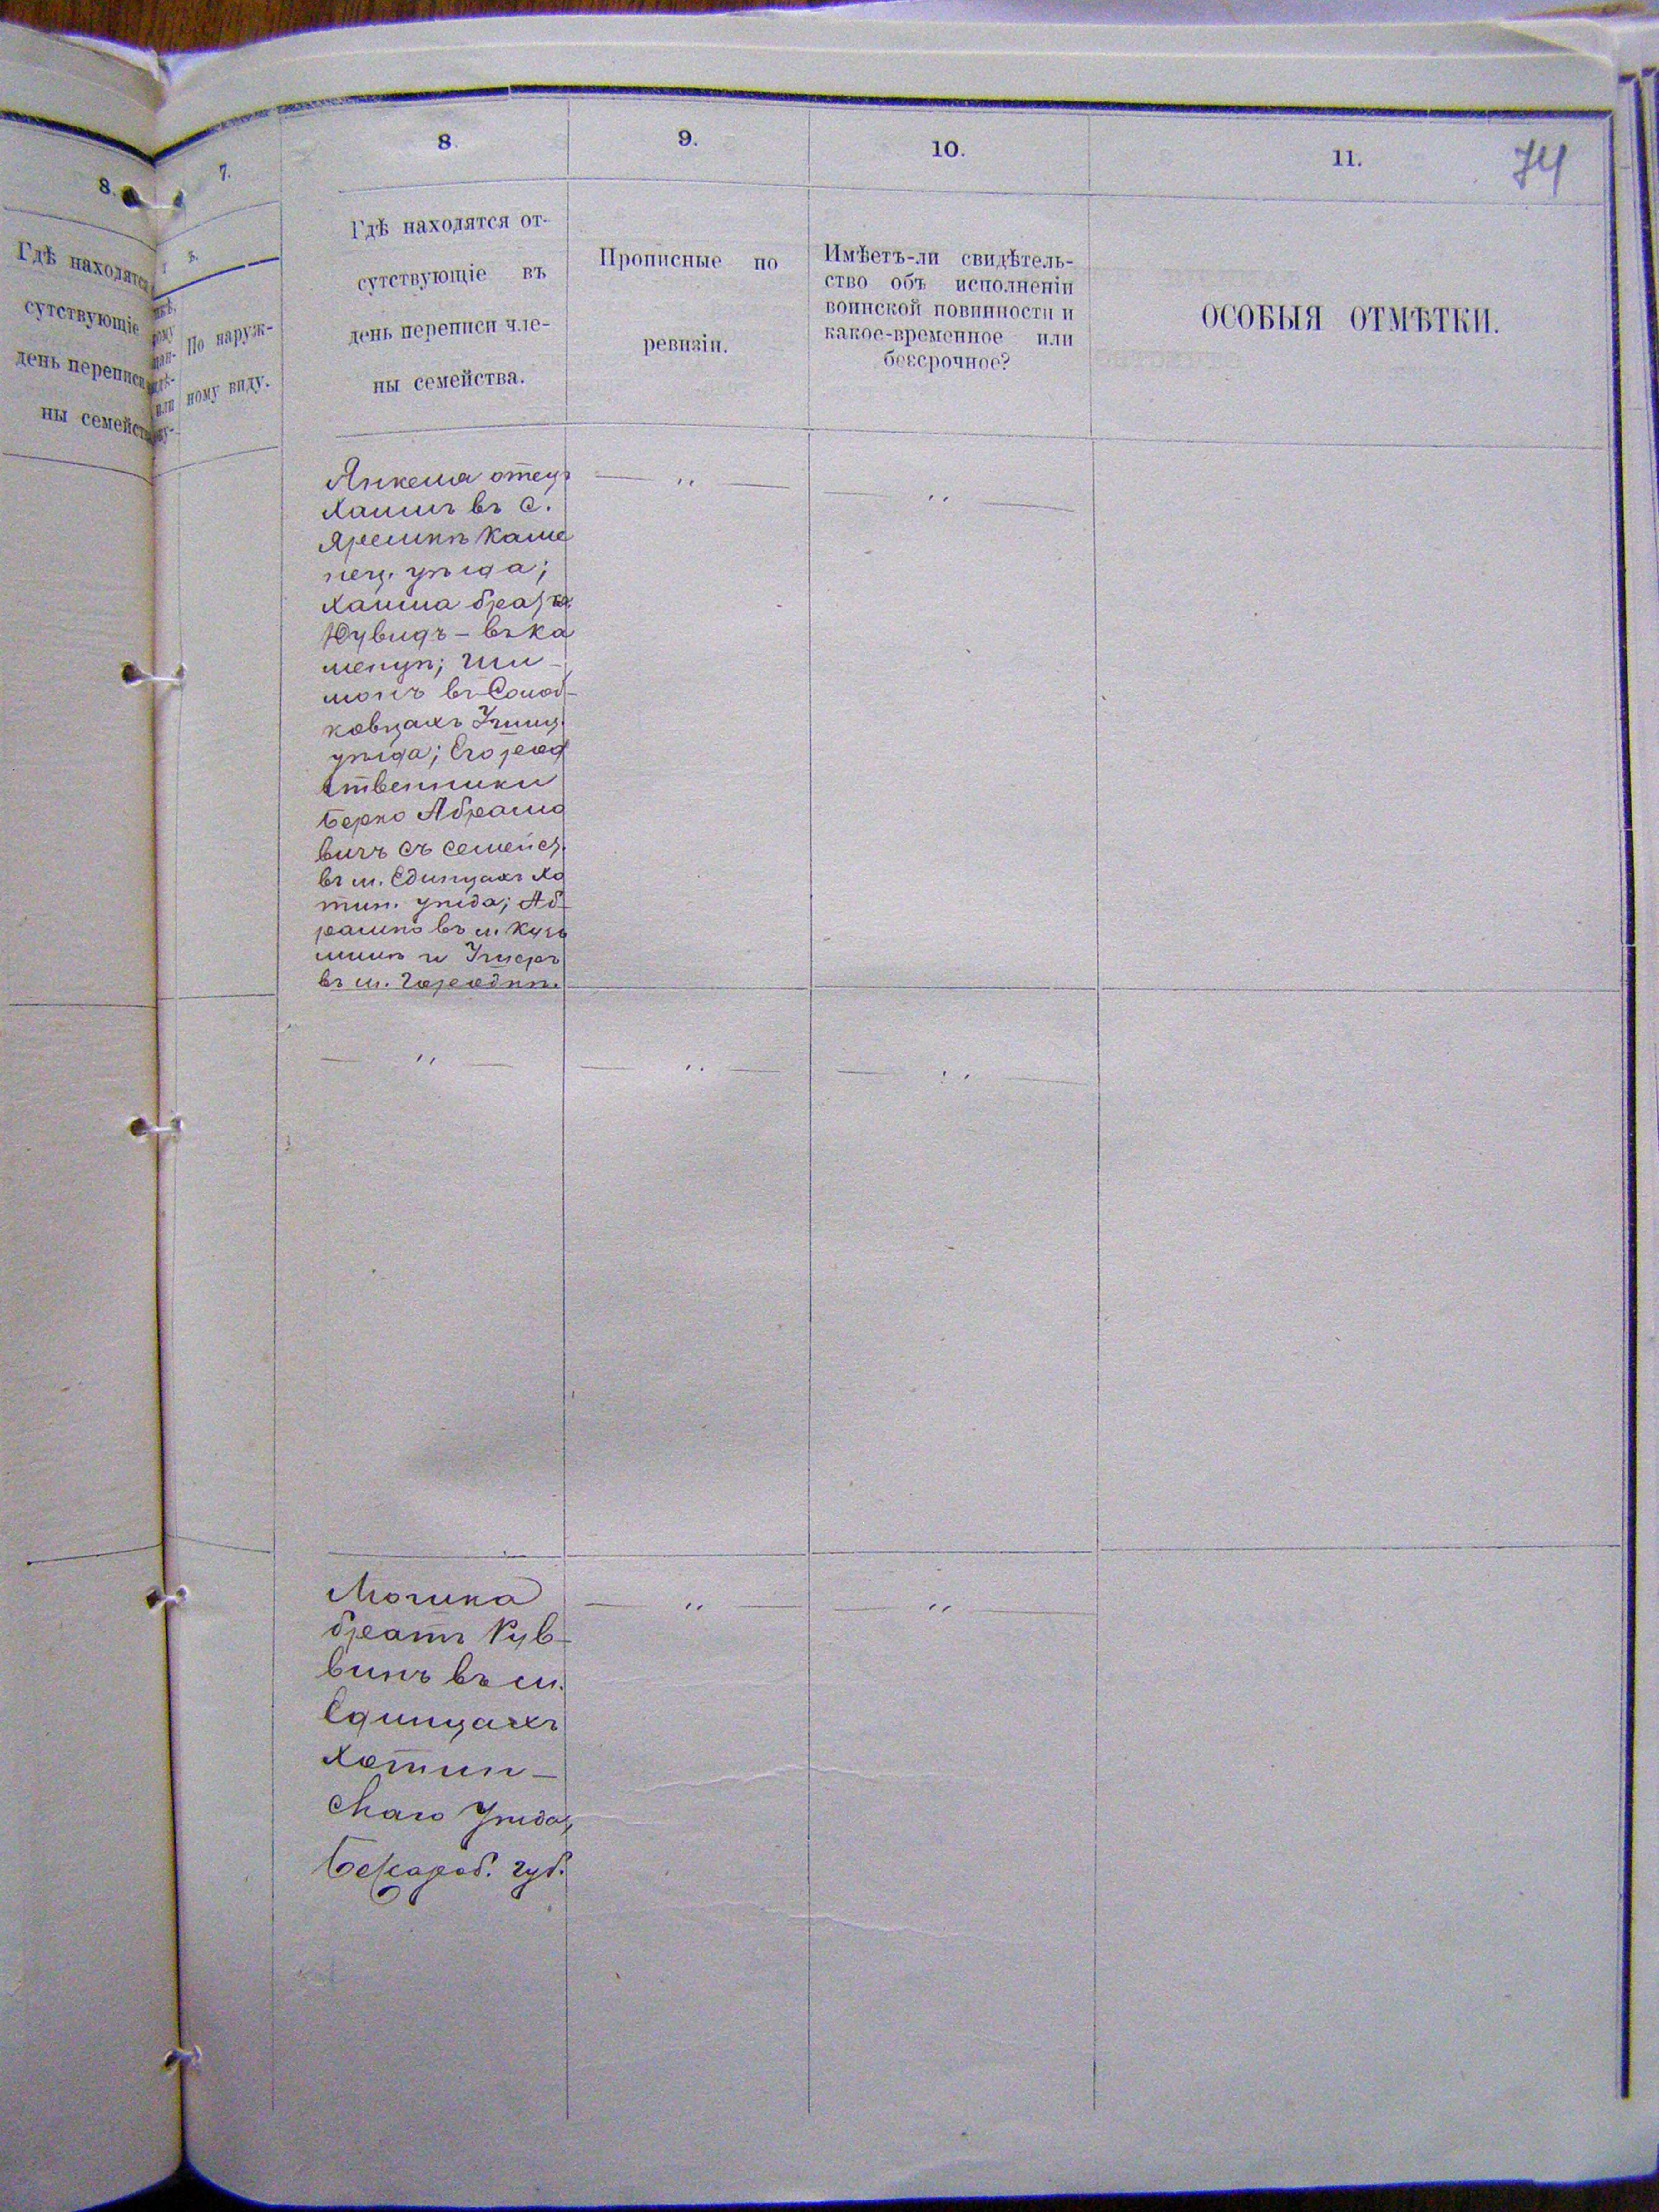 8.
Гдѣ находятся
сутствующіе
день переписи
ны семейст
7.
По наруж-
ному виду.
8
Гдѣ находятся от-
сутствующіе въ
день переписи чле-
ны семейства.
9.
Прописные по
ревизіи.
10.
Имѣетъ-ли свидѣтель-
ство объ исполненіи
воинской повинности и
какое-временное или
безсрочное?
11.
74
ОСОБЫЯ ОТМѢТКИ.
Янкеля отецъ
Хаимъ въ с.
Каме
нец. уѣзда;
Хаима братъя
въ Ка
менцѣ; Ши-
монъ въ
ковцахъ Ушиц.
уѣзда; Его род
ственники
Берко Абрамо
вичъ съ семейст.
въ м. Единцахъ Хо
тин. уѣзда; Аб-
рамко въ м. Кузь
минѣ и
въ м. Городкѣ.
Мошка
братъ Рув-
винъ въ м.
Единцахъ
Хотин-
скаго Уѣзда,
Бессараб. губ.